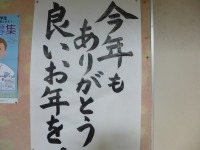 今年も
ありがとう
良いお年を
集